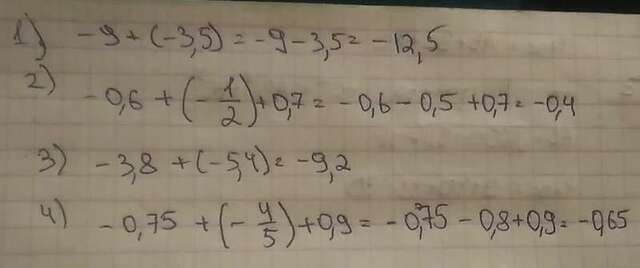 1) -9 + (-3,5) = -9 - 3,5 = -12,5
2) -0,6 + (-1/2) + 0,7 = -0,6 - 0,5 + 0,7 = -0,4
3) -3,8 + (-5,4) = -9,2
4) -0,75 + (-4/5) + 0,9 = -0,75 - 0,8 + 0,9 = -0,65